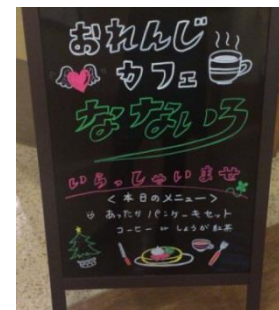 おれんじ
カフェ
なないろ
いらっしゃいませ
<本日のメニュー>
あったかパンケーキセット
コーヒー or しょうが紅茶